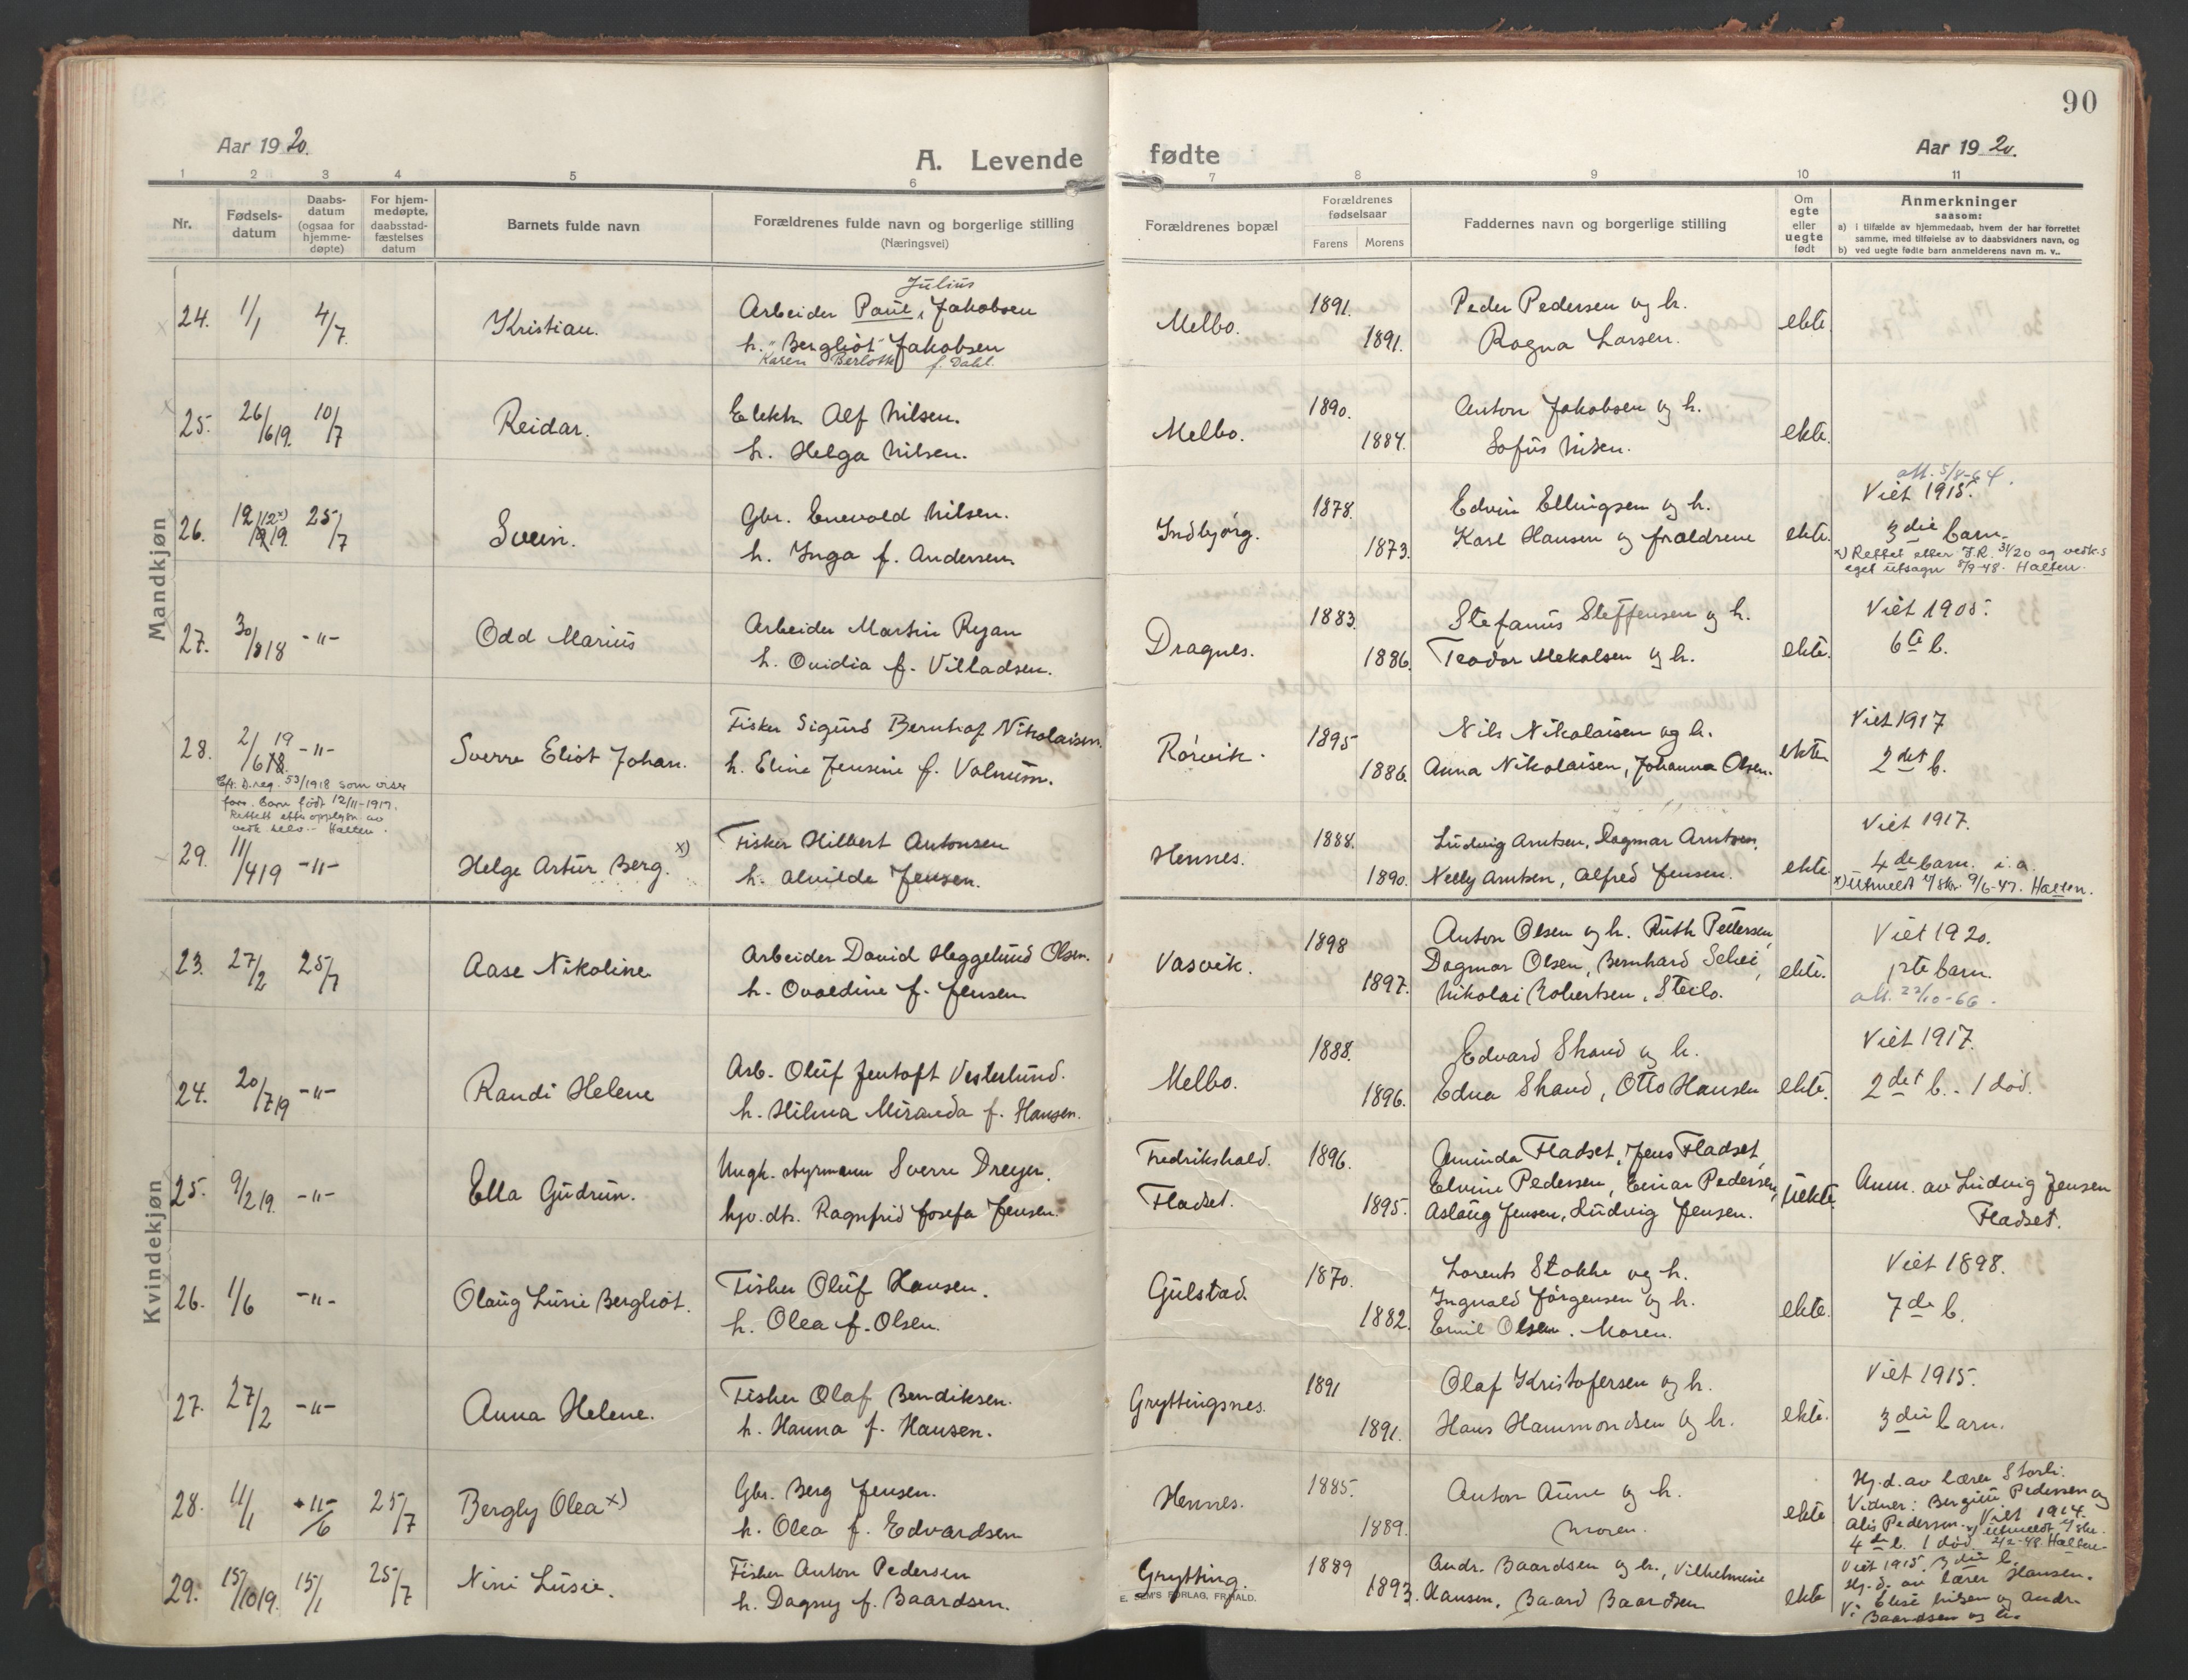 90
Aar 1920.
A. Levende fødte
Aar 1920.
1 2 3 4 5 6 7 8 9 10 11
Nr.
Fødsels-
datum
Daabs-
datum
(ogsaa for
hjemme-
døpte)
For hjem-
medøpte,
daabsstad-
fæstelses
datum
Barnets fulde navn
Forældrenes fulde navn og borgerlige stilling
(Næringsvei)
Forældrenes bopæl
Forældrenes
fødselsaar
Farens Morens
Faddernes navn og borgerlige stilling
Om
egte
eller
uegte
født
Anmerkninger
saasom:
a) i tilfælde av hjemmedaab, hvem der har forrettet
samme, med tilføielse av to daabsvidners navn, og
b) ved uegte fødte barn anmelderens navn m. v..
Mandkjøn
24. 1/1 4/7 Kristian.
Julius
Arbeider Paul, Jakobsen
h. Bergliot Jakobsen
Karen Berlott f. Dahl.
Melbo. 1891. 1891.
Peder Pedersen og h.
Ragna Larsen.
ekte
25. 26/6 19. 10/7 Reidar.
Elektr. Alf Nilsen.
h. Helga Nilsen.
Melbo. 1890. 1884.
Anton Jakobsen og h.
Sofus Nilsen.
ekte.
26. 12/12 x) 19. 25/7 Svein.
Gbr. Enevold Nilsen.
h. Inga f. Andersen
Indbjørg. 1878. 1873.
Edvin Ellingsen og h.
Karl Hansen og foraldrene
ekte.
att. 5/8-64.
Viet 1915.
3die barn.
x) Rettet etter F.R. 31/20 og vedk.s
eget utsagn 8/9-48. Halten.
27. 30/8 18 -"- Odd Marius
Arbeider Martin Ryan
h. Ovidia f. Villadsen.
Dragnes. 1883. 1886.
Stefanus Steffensen og h.
Teodor Mekalsen og h.
ekte.
Viet 1905.
6te b.
28. 2/6 19 18. -"- Sverre Eliot Johan.
Fisker Sigurd Bernhof Nikolaisen.
h. Eline Jensine f. Valnum.
Rørvik. 1895 1886.
Nils Nikolaisen og h.
Anna Nikolaisen, Johanna Olsen.
ekte
Viet 1917
2det b.
Eft. D.reg. 53/1918 som viser
fors. barn født 12/11-1917.
Rettet etter opplysn. av
vedk. selv. Halten.
29. 11/4 19 -"- Helge Artur Berg. x)
Fisker Hilbert Antonsen
h. Alvilde Jensen.
Hennes. 1888. 1890.
Ludvig Arntsen, Dagmar Arntsen,
Nelly Arntsen, Alfred Jensen.
ekte
Viet 1917.
4de barn. i.a.
x) Utmeldt 9/6-47. Halten.
Kvindekjøn
23. 27/2 25/7 Aase Nikoline
Arbeider David Heggelund Olsen.
h. Ovaldine f. Jensen
Vasvik. 1898 1897.
Anton Olsen og h. Ruth Pettersen,
Dagmar Olsen, Bernhard Schei,
Nikolai Robertsen, Steilo.
ekte.
Viet 1920.
1ste barn.
att. 22/10-66.
24. 20/7 19 -"- Randi Helene
Arb. Oluf Jentoft Vesterlund.
h. Hilma Miranda f. Hansen.
Melbo. 1888. 1896.
Edvard Shand og h.
Edna Shand, Otto Hansen
ekte.
Viet 1917.
2det b. - 1 død.
25. 9/2 19. -"- Ella Gudrun.
Ungk. styrmann Sverre Dreyer.
hjv. dtr. Ragnfrid Josefa Jensen.
Fredrikshald.
Fladset.
1896. 1895.
Aminda Fladset, Jens Fladset,
Elvine Pedersen, Einar Pedersen,
Aslaug Jensen, Ludvig Jensen.
uekte.
Anm. av Ludvig Jensen
Fladset.
26. 1/6 -"- Olaug Lusie Bergliot.
Fisker Oluf Hansen.
h. Olea f. Olsen.
Gulstad. 1870. 1882.
Lorents Stokke og h.
Ingvald Jørgensen og h.
Emil Olsen. Moren.
ekte.
Viet 1898.
7de b.
27. 27/2 -"- Anna Helene.
Fisker Olaf Bendiksen.
h. Hanna f. Hansen.
Gryttingsnes. 1891 1891.
Olaf Kristofersen og h.
Hans Hammondsen og h.
ekte.
Viet 1915.
3die barn.
28. 11/1 11/6 25/7 Bergly Olea x)
Gbr. Berg Jensen.
h. Olea f. Edvardsen
Hennes. 1885. 1889.
Anton Aune og h.
Moren.
ekte
Hj.d. av lærer Storli.
Vidner: Bergitte Pedersen og
Alis Pedersen. Viet 1914.
4de b. 1 død. x) Utmeldt Halten.
29. 15/10 19. 15/1 25/7 Nini Lusie.
Fisker Anton Pedersen
h. Dagny f. Baardsen.
Grytting. 1889 1893.
Andr. Baardsen og h., Vilhelmine
Hansen, Baard Baardsen
ekte
Viet 1915. 3die b.
Hj.d. av lærer Hansen.
V: Elise Nilsen og Andr.
Baardsen og h.
E. SEM'S FORLAG, FR.HALD.